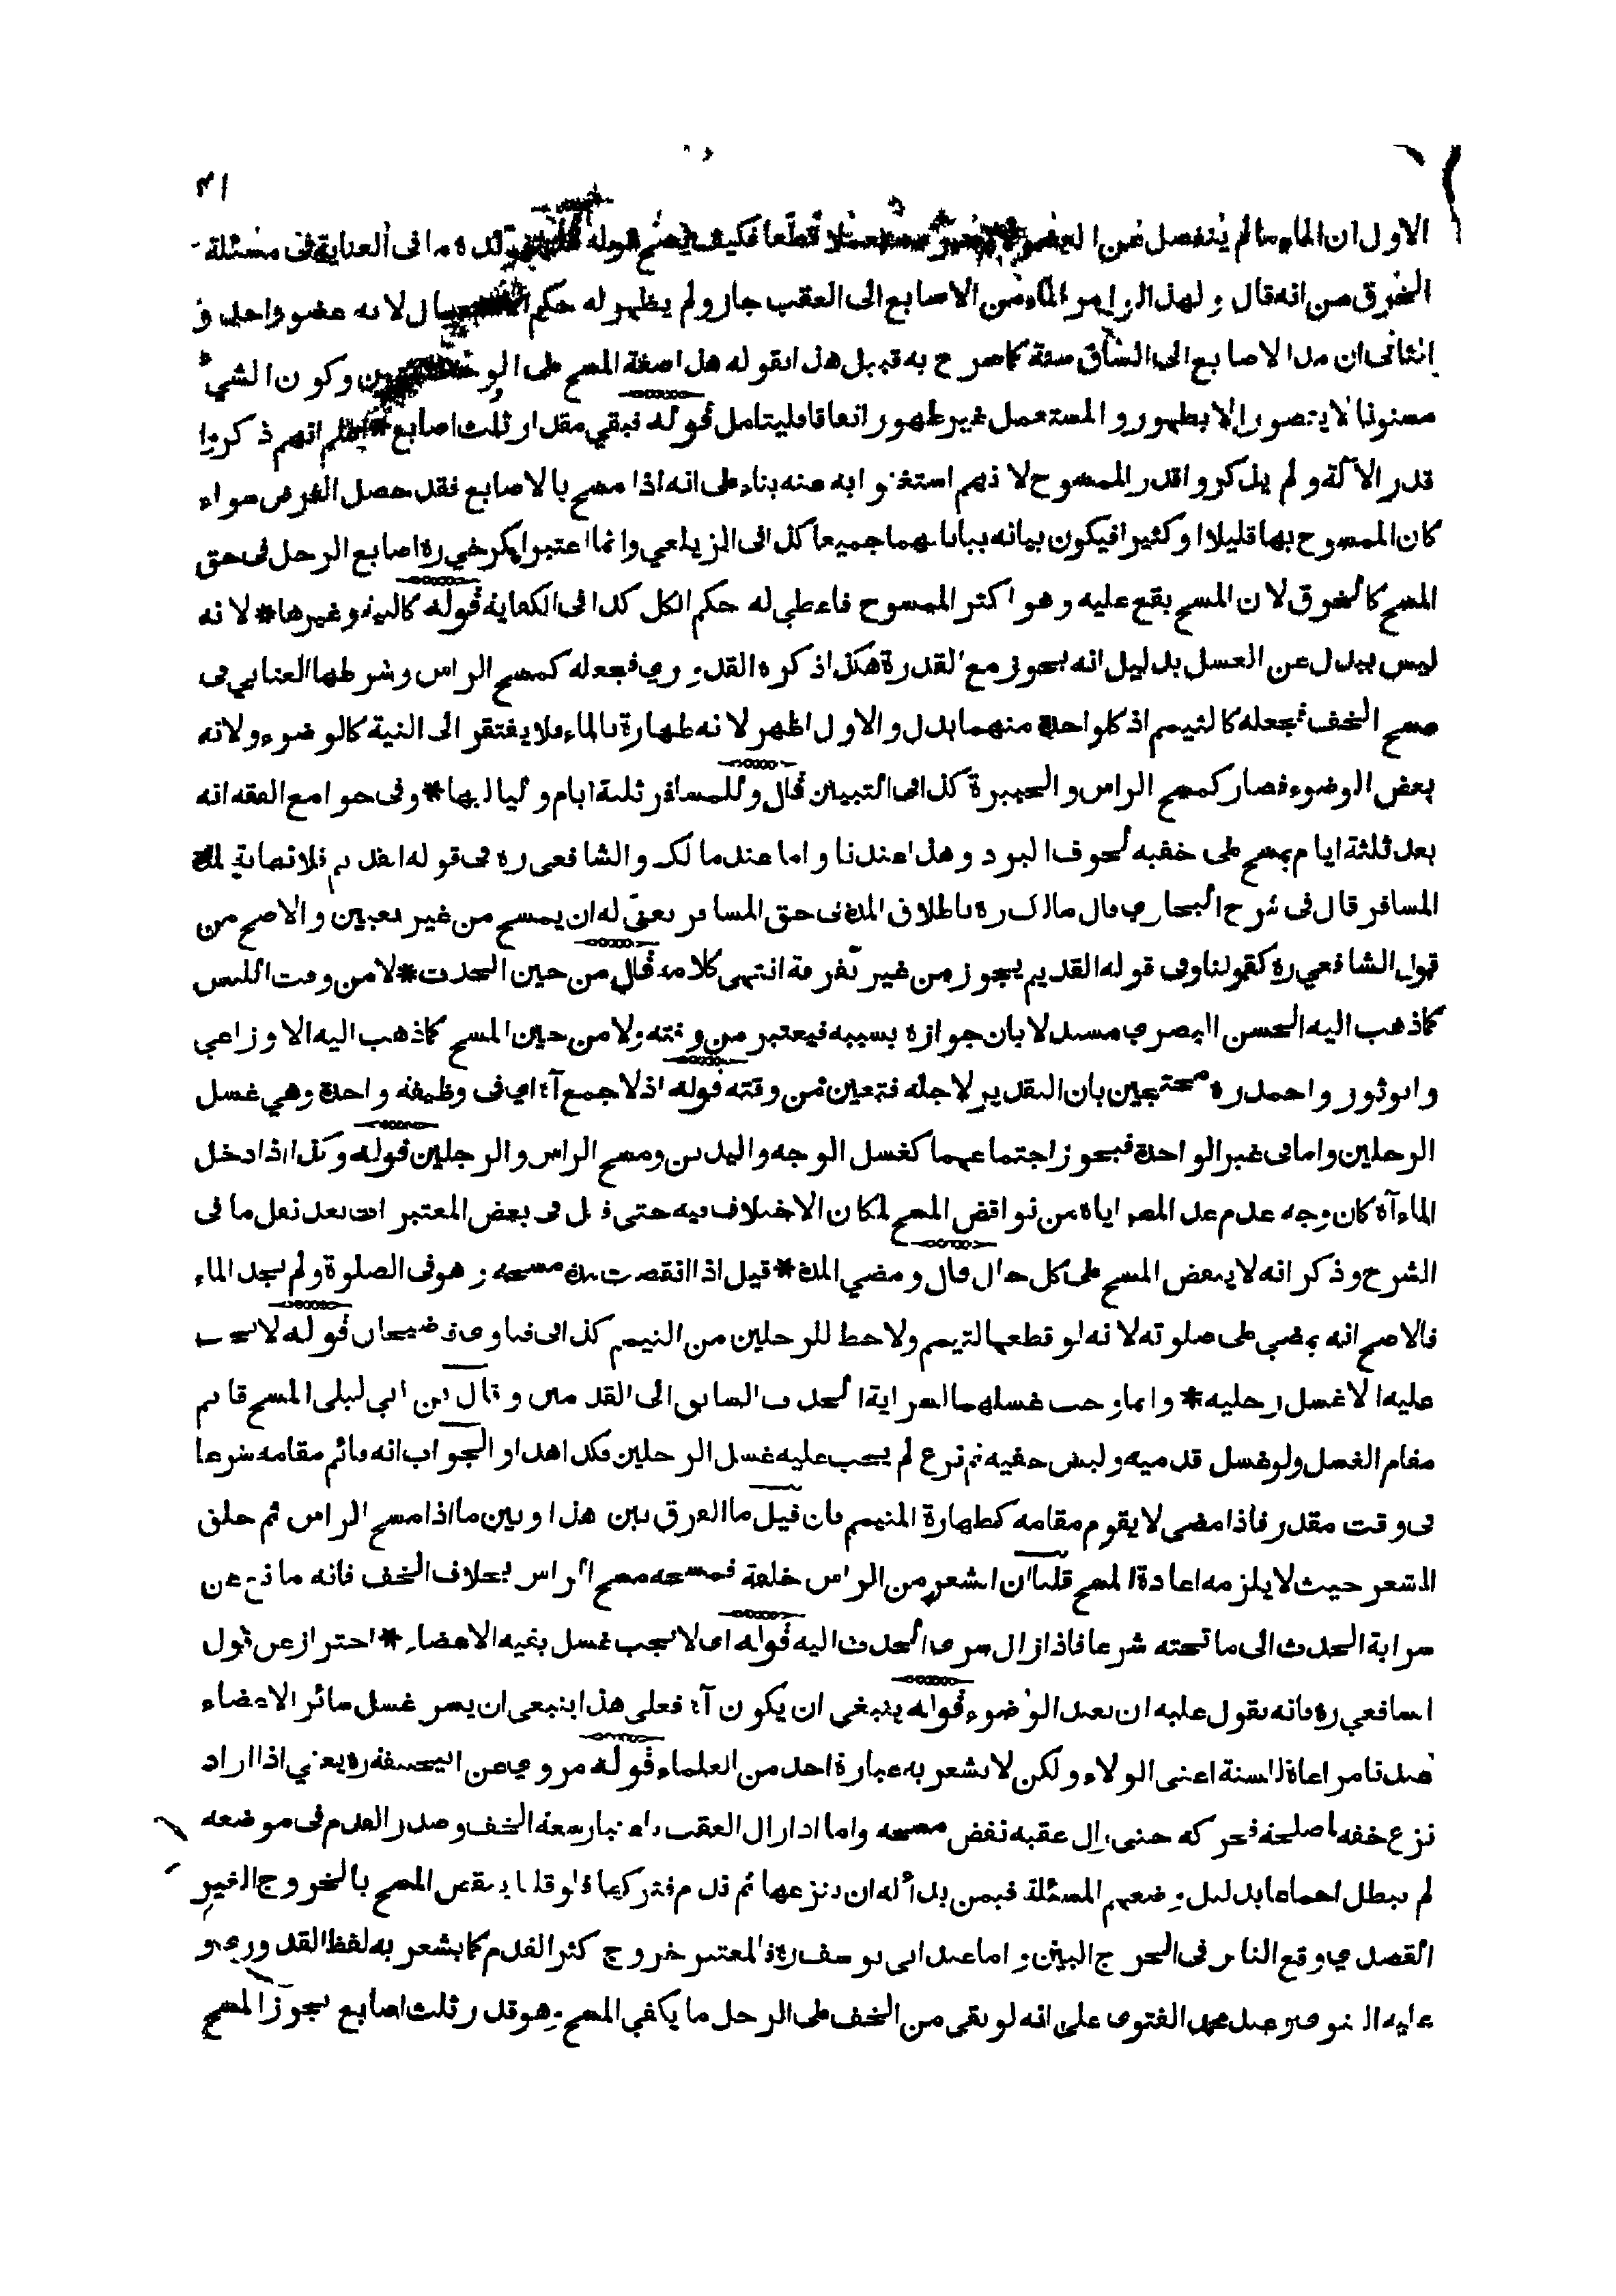 ٤١
الاول ان الماء ما لم ينفصل عن العضو لا يصير مستعملا قطعا فكيف يصح قوله ما فى العناية فى مسئلة
الخرق من انه قال ولهذا لو امر الماء من الاصابع الى العقب جاز ولم يظهر له حكم لانه عضو واحد و
الثانى ان مد الاصابع الى الساق سنة كما صرح به قبيل هذا بقوله هذا صفة المسح على الوجه وكون الشيء
مسنونا لا يتصور الا بطهور والمستعمل غير طهور اتفاقا فليتامل قوله فبقي مقدار ثلث اصابع * اعلم انهم ذكروا
قدر الآلة ولم يذكروا قدر الممسوح لانهم استغنوا به عنه بناء على انه اذا مسح بالاصابع فقد حصل الغرض سواء
كان الممسوح بها قليلا او كثيرا فيكون بيانه بيانا لهما جميعا كذا فى الزيلعي وانما اعتبر الكرخي ره اصابع الرجل فى حق
المسح كالخروق لان المسح يقع عليه وهو اكثر الممسوح فاعطي له حكم الكل كذا فى الكفاية قوله كالنية وغيرها * لانه
ليس ببدل عن الغسل بدليل انه يجوز مع القدرة هكذا ذكره القدوري فجعله كمسح الراس وشرطها العتابي فى
مسح الخف فجعله كالتيمم اذ كل واحد منهما بدل والاول اظهر لانه طهارة بالماء فلا يفتقر الى النية كالوضوء ولانه
بعض الوضوء فصار كمسح الراس والجبيرة كذا فى التبيين قال وللمسافر ثلثة ايام ولياليها * وفى جوامع الفقه انه
بعد ثلثة ايام يمسح على خفيه لخوف البرد وهذا عندنا واما عند مالك والشافعى ره فى قوله القديم فلا نهاية لمدة
المسافر قال فى شرح البخارى قال مالك ره باطلاق المدة فى حق المسافر يعنى له ان يمسح من غير تعيين والاصح من
قول الشافعي ره كقولنا وفى قوله القديم يجوز من غير تفرقة انتهى كلامه قال من حين الحدث * لا من وقت اللبس
كما ذهب اليه الحسن البصرى مستدلا بان جوازه بسببه فيعتبر من وقته ولا من حين المسح كما ذهب اليه الاوزاعي
وابو ثور واحمد ره محتجين بان التقدير لاجله فتعين من وقته قوله اذ لا جمع آه اى فى وظيفة واحدة وهي غسل
الرجلين واما فى غير الواحدة فيجوز اجتماعهما كغسل الوجه واليدين ومسح الراس والرجلين قوله وكذا اذا دخل
الماء آه كان وجه عدم عد المص اياه من نواقض المسح لمكان الاختلاف فيه حتى ذكر فى بعض المعتبرات بعد نقل ما فى
الشرح وذكر انه لا ينقض المسح على كل حال قال ومضي المدة * قيل اذا انقضت مدة مسحه وهو فى الصلوة ولم يجد الماء
فالاصح انه يمضي على صلوته لانه لو قطعها لتيمم ولا حظ للرجلين من التيمم كذا فى فتاوى قاضيخان قوله لا يجب
عليه الا غسل رجليه * وانما وجب غسلهما لسراية الحدث السابق الى القدمين وقال ابن ابي ليلى المسح قائم
مقام الغسل ولو غسل قدميه ولبس خفيه ثم نزع لم يجب عليه غسل الرجلين فكذا هذا والجواب انه قائم مقامه شرعا
فى وقت مقدر فاذا مضى لا يقوم مقامه كطهارة المتيمم فان قيل ما الفرق بين هذا وبين ما اذا مسح الراس ثم حلق
الشعر حيث لا يلزمه اعادة المسح قلنا ان الشعر من الراس خلقة فمسحه مسح الراس بخلاف الخف فانه مانع عن
سراية الحدث الى ما تحته شرعا فاذا زال سرى الحدث اليه قوله اى لا يجب غسل بقية الاعضاء * احتراز عن قول
الشافعي ره فانه يقول عليه ان يعيد الوضوء قوله ينبغي ان يكون آه فعلى هذا ينبغى ان يسن غسل سائر الاعضاء
عندنا مراعاة للسنة اعنى الولاء ولكن لا يشعر به عبارة احد من العلماء قوله مروي عن ابيحنيفة ره يعني اذا اراد
نزع خفه لمصلحة فحركه حتى زال عقبه نقض مسحه واما اذا زال العقب باعتبار سعة الخف وصدر القدم فى موضعه
لم يبطل اجماعا بدليل وضعهم المسئلة فيمن بدأ له ان ينزعها ثم ندم فتركها فلو قلنا بنقض المسح بالخروج الغير
القصدي وقع الناس فى الحرج البين واما عند ابى يوسف ره فالمعتبر خروج اكثر القدم كما يشعر به لفظ القدورى و
عليه الفتوى وعند محمد الفتوى على انه لو بقى من الخف على الرجل ما يكفي المسح وهو قدر ثلث اصابع يجوز المسح